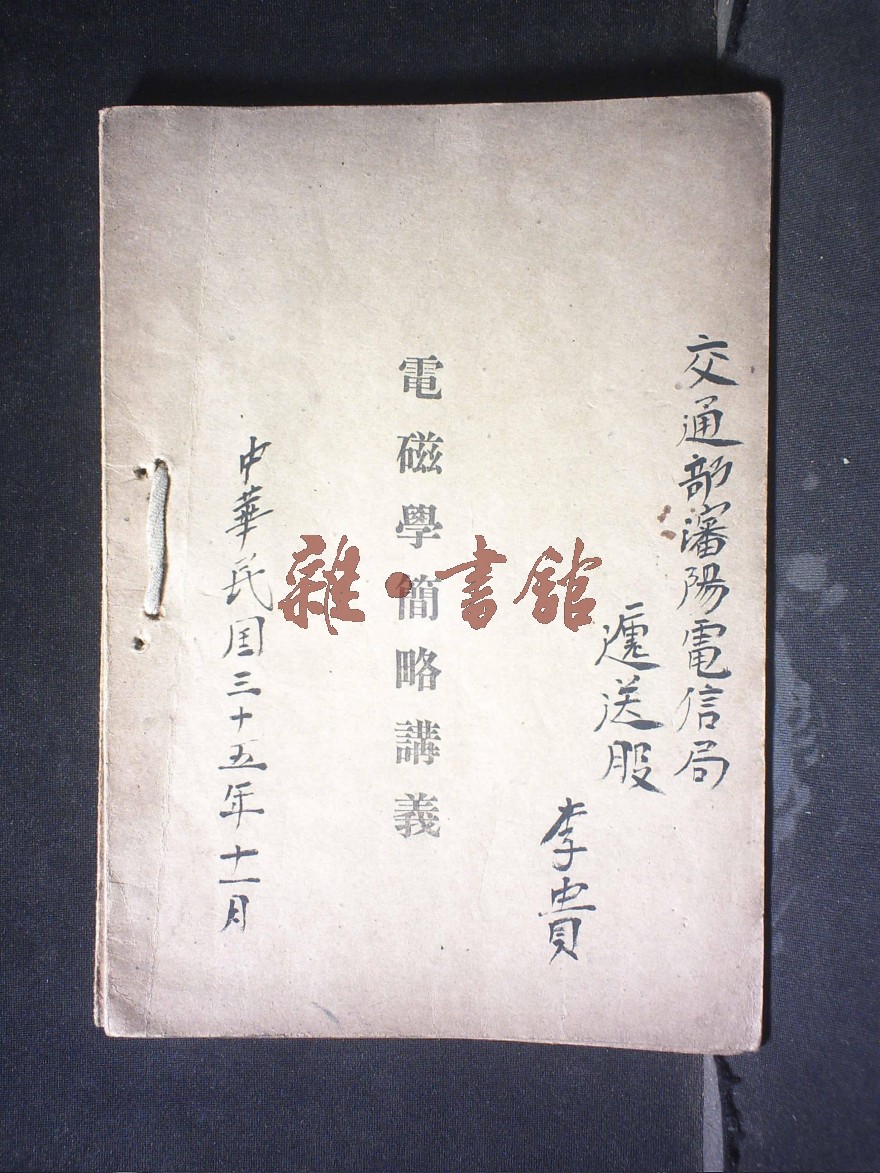 交通部瀋陽電信局
遞送股
李貴
電磁學簡略講義
中華民国三十五年十一月
雜·書館